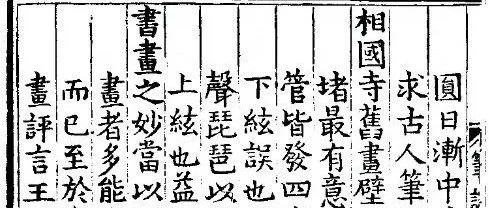 圓日漸中
求古人筆
相國寺舊畫壁
堵最有意
管皆發四
下絃誤也
聲琵琶以
上絃也益
書畫之妙當以
畫者多能
而已至於
畫評言王